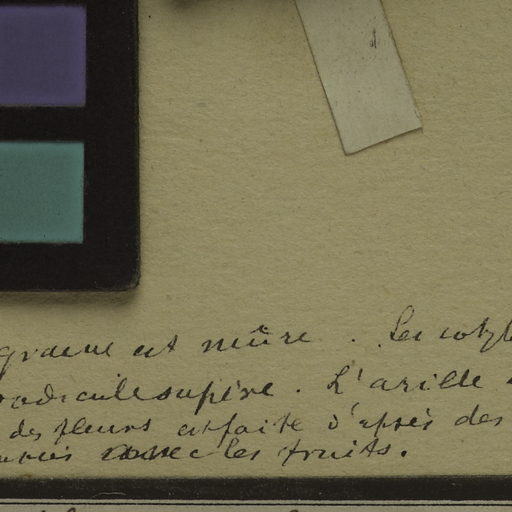 graine est mûre . Les cotyl
radicule supère . L'arille
des fleurs est faite d'après des
avec les fruits.